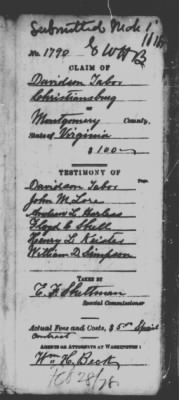 Submitted Mch 1st
No. 1790
CLAIM OF
Davidson Tabor
Christiansburg
OF
Montgomery County,
State of Virginia
$ 100
TESTIMONY OF
Page.
Davidson Tabor
John M Lore
Andrew L Harless
Floyd C Shell
Henry L Keister
William D. Simpson
TAKEN BY
E. F. Shettman
Special Commissioner
Actual Fees and Costs, $ 5.00 Special
contract
AGENTS OR ATTORNEYS AT WASHINGTON:
Wm H. Beck
Feb 28/78